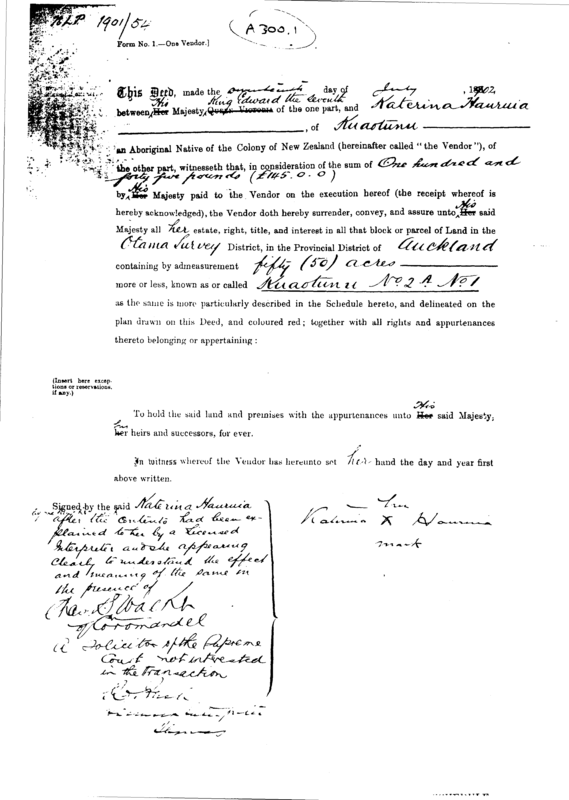 NLP 1901/54
A 300.1
Form No. 1.—One Vendor.)
This Deed, made the day of July, 1902,
between His Her Majesty King Edward the Seventh Queen Victoria of the one part, and Katerina Hauruia
, of Kuaotunu
an Aboriginal Native of the Colony of New Zealand (hereinafter called "the Vendor"), of
the other part, witnesseth that, in consideration of the sum of One hundred and
forty five pounds (£145.0.0)
by His Her Majesty paid to the Vendor on the execution hereof (the receipt whereof is
hereby acknowledged), the Vendor doth hereby surrender, convey, and assure unto His Her said
Majesty all her estate, right, title, and interest in all that block or parcel of Land in the
Otama Survey District, in the Provincial District of Auckland
containing by admeasurement fifty (50) acres
more or less, known as or called Kuaotunu No 2A No 1
as the same is more particularly described in the Schedule hereto, and delineated on the
plan drawn on this Deed, and coloured red; together with all rights and appurtenances
thereto belonging or appertaining:
(Insert here excep-
tions or reservations,
if any.)
To hold the said land and premises with the appurtenances unto His Her said Majesty,
his her heirs and successors, for ever.
In witness whereof the Vendor has hereunto set her hand the day and year first
above written.
Signed by the said Katerina Hauruia
after the contents had been ex-
plained to her by a Licensed
Interpreter and she appearing
clearly to understand the effect
and meaning of the same in
the presence of
of Coromandel
A Solicitor of the Supreme
Court not interested
in the transaction
Licensed Interpreter
Thames
her
Katerina X Hauruia
mark